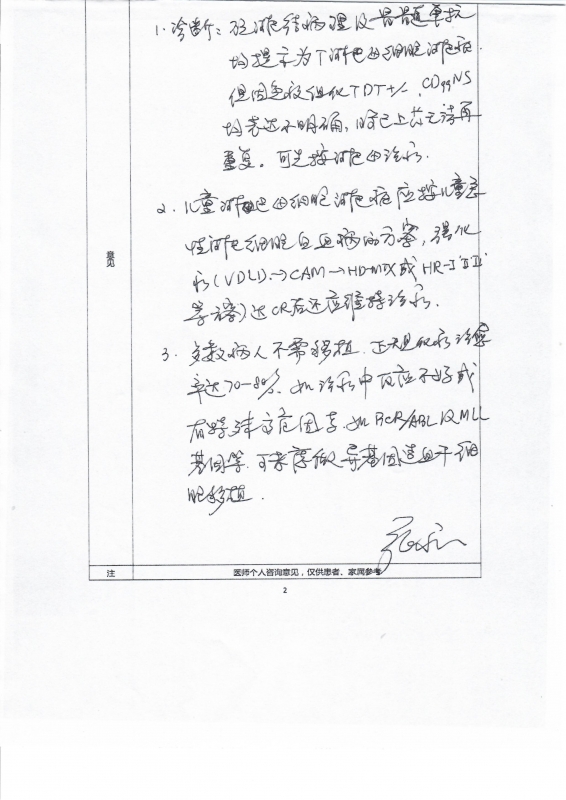 1. 诊断：颈淋巴结病理及骨髓单抗
均提示为T淋巴母细胞淋巴瘤.
但因免疫组化TDT+/-. CD99NS
均表达不明确，
重复。可先按淋巴母治疗.
2. 儿童淋巴母细胞淋巴瘤应按儿童急
性淋巴细胞白血病的方案，强化
疗(VDLD→CAM→HD-MTX或HR-I'II'III'
等)达CR后还应维持治疗.
3. 多数病人不需移植. 正规化疗治愈
率达70-80%. 如治疗中反应不好或
有特殊高危因素. 如BCR/ABL及MLL
基因等. 可考虑做异基因造血干细
胞移植.
意见
注 医师个人咨询意见，仅供患者、家属参考
2